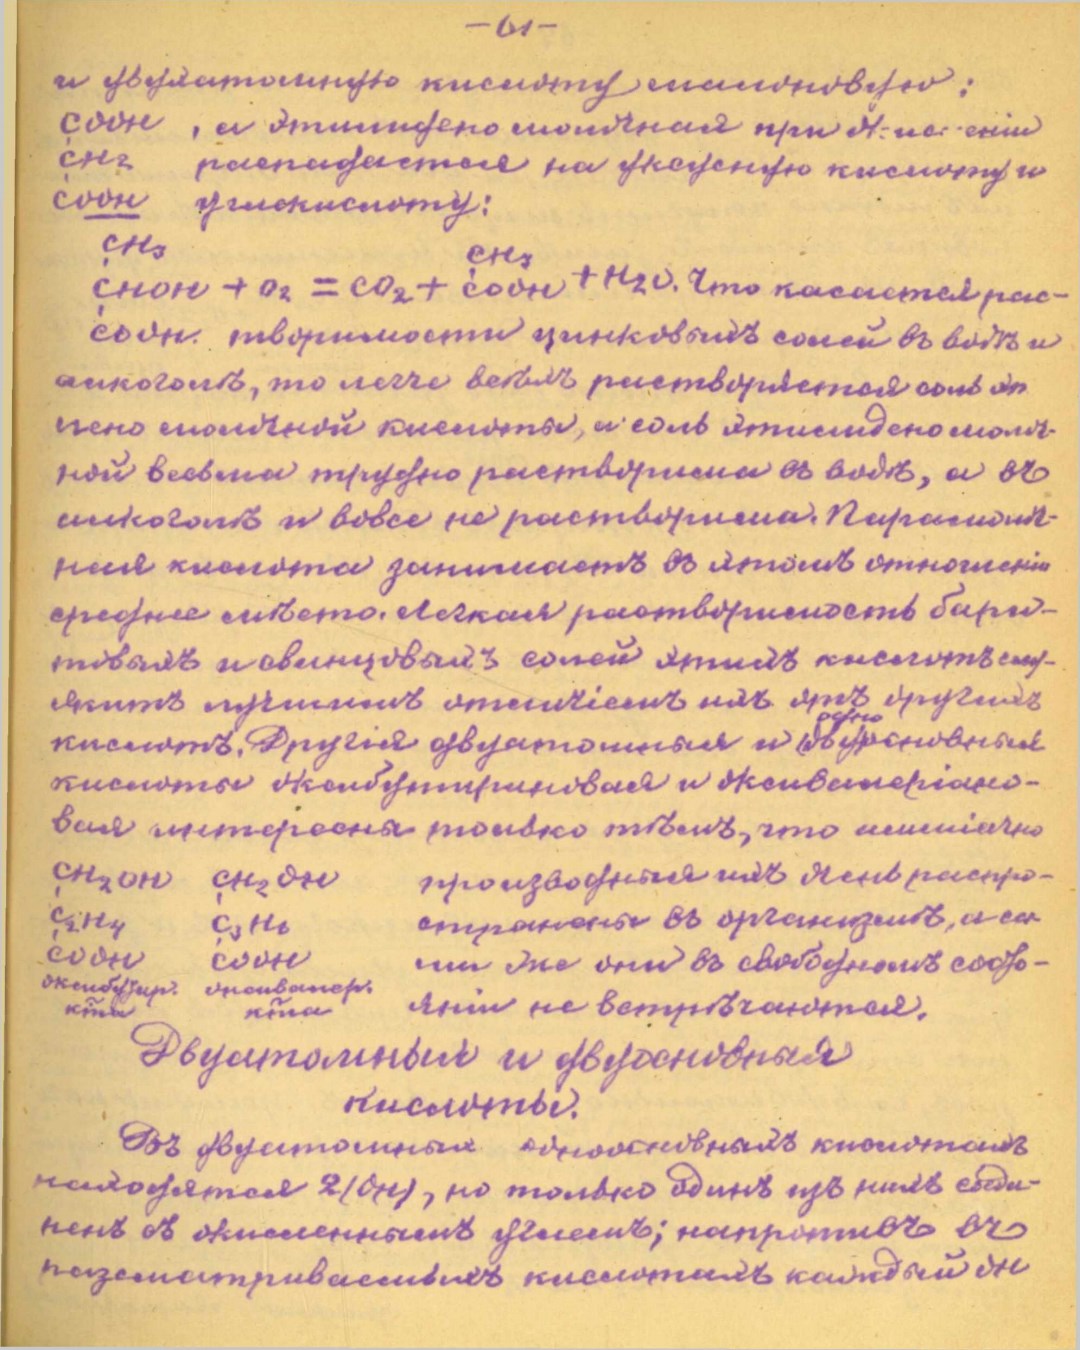 —61—
и двуатомную кислоту малоновую:
COOH , а этилиденомолочная при
CH2 распадается на уксусную кислоту и
COOH углекислоту:
CH3 CH3
CHOH + O2 = CO2 + COOH + H2O. Что касается рас-
COOH. творимости цинковыхъ солей въ водѣ и
алкоголѣ, то легче всѣхъ растворяется соль эти
лено молочной кислоты, а соль этилиденомолоч-
ной весьма трудно растворима въ водѣ, а въ
алкоголѣ и вовсе не растворима. Парамолоч-
ная кислота занимаетъ въ этомъ отношеніи
среднее мѣсто. Легкая растворимость бари-
товыхъ и свинцовыхъ солей этихъ кислотъ слу-
житъ лучшимъ отличіемъ ихъ отъ другихъ
одно
кислотъ. Другія двуатомныя и двуосновныя
кислоты оксибутириновая и оксивалеріано-
вая интересны только тѣмъ, что
CH2OH CH2OH производныя ихъ очень распро-
C2H4 C3H6 странены въ организмѣ, а са
COOH COOH ми же они въ свободномъ состо-
оксибутир. оксивалер. яніи не встрѣчаются.
к̅та к̅та
Двуатомныя и двуосновныя
кислоты.
Въ двуатомныхъ одноосновныхъ кислотахъ
находятся 2(OH), но только одинъ изъ нихъ соеди-
ненъ съ окисленнымъ углемъ; напротивъ въ
разсматриваемыхъ кислотахъ каждый OH